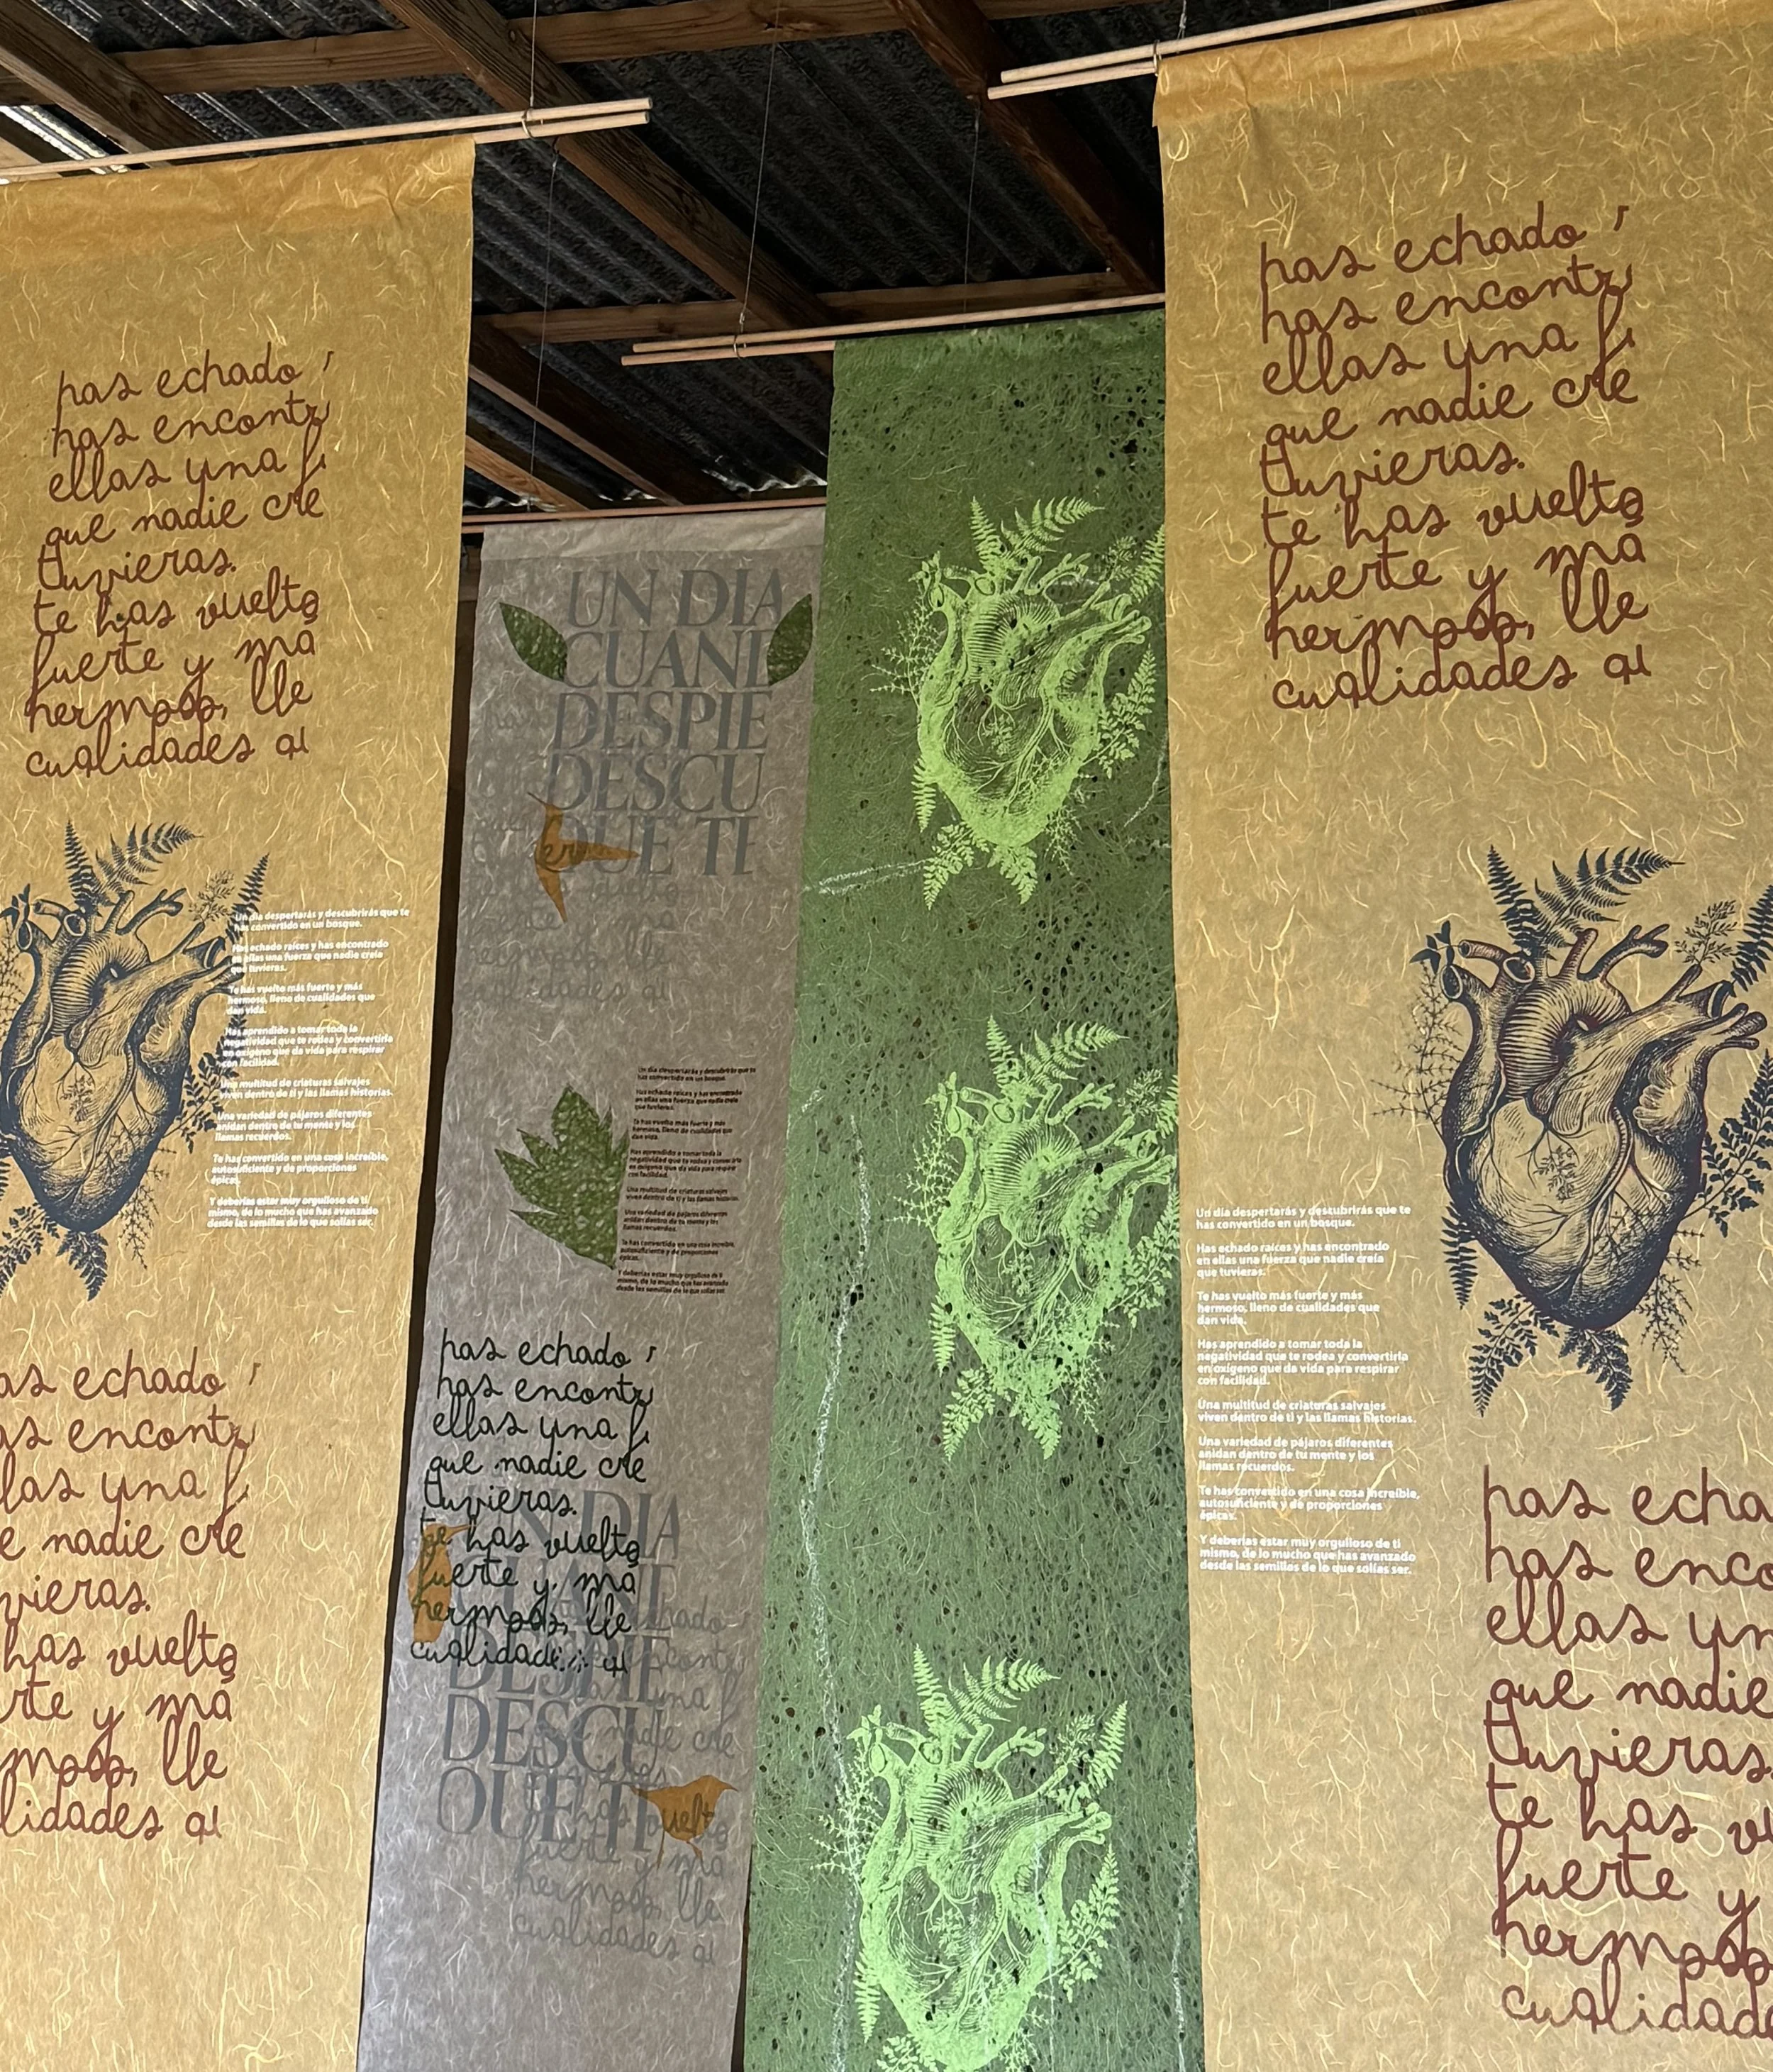 has echado
has encontr
ellas una f
que nadie cre
tuvieras.
te has vuelto
fuerte y má
hermoso, lle
cualidades qu
Un día despertarás y descubrirás que te
has convertido en un bosque.
Has echado raíces y has encontrado
en ellas una fuerza que nadie creía
que tuvieras.
Te has vuelto más fuerte y más
hermoso, lleno de cualidades que
dan vida.
Has aprendido a tomar toda la
negatividad que te rodea y convertirla
en oxígeno que da vida para respirar
con facilidad.
Una multitud de criaturas salvajes
viven dentro de ti y las llamas historias.
Una variedad de pájaros diferentes
anidan dentro de tu mente y los
llamas recuerdos.
Te has convertido en una cosa increíble,
autosuficiente y de proporciones
épicas.
Y deberías estar muy orgulloso de ti
mismo, de lo mucho que has avanzado
desde las semillas de lo que solías ser.
as echado
as encontr
las una f
e nadie cre
vieras.
has vuelto
rte y má
moso, lle
lidades qu
UN DIA
CUAND
DESPIE
DESCU
QUE TE
Un día despertarás y descubrirás que te
has convertido en un bosque.
Has echado raíces y has encontrado
en ellas una fuerza que nadie creía
que tuvieras.
Te has vuelto más fuerte y más
hermoso, lleno de cualidades que
dan vida.
Has aprendido a tomar toda la
negatividad que te rodea y convertirla
en oxígeno que da vida para respirar
con facilidad.
Una multitud de criaturas salvajes
viven dentro de ti y las llamas historias.
Una variedad de pájaros diferentes
anidan dentro de tu mente y los
llamas recuerdos.
Te has convertido en una cosa increíble,
autosuficiente y de proporciones
épicas.
Y deberías estar muy orgulloso de ti
mismo, de lo mucho que has avanzado
desde las semillas de lo que solías ser.
has echado
has encontr
ellas una f
que nadie cre
tuvieras.
te has vuelto
fuerte y má
hermoso, lle
cualidades qu
UN DIA
DESPIE
DESCU
QUE TI
nadie cre
vuelto
fuerte y má
hermoso, lle
cualidades qu
has echado
has encontr
ellas una f
que nadie cre
tuvieras.
te has vuelto
fuerte y má
hermoso, lle
cualidades qu
Un día despertarás y descubrirás que te
has convertido en un bosque.
Has echado raíces y has encontrado
en ellas una fuerza que nadie creía
que tuvieras.
Te has vuelto más fuerte y más
hermoso, lleno de cualidades que
dan vida.
Has aprendido a tomar toda la
negatividad que te rodea y convertirla
en oxígeno que da vida para respirar
con facilidad.
Una multitud de criaturas salvajes
viven dentro de ti y las llamas historias.
Una variedad de pájaros diferentes
anidan dentro de tu mente y los
llamas recuerdos.
Te has convertido en una cosa increíble,
autosuficiente y de proporciones
épicas.
Y deberías estar muy orgulloso de ti
mismo, de lo mucho que has avanzado
desde las semillas de lo que solías ser.
has echa
has enco
ellas un
que nadie
tuvieras.
te has vu
fuerte y
hermoso
cualidade